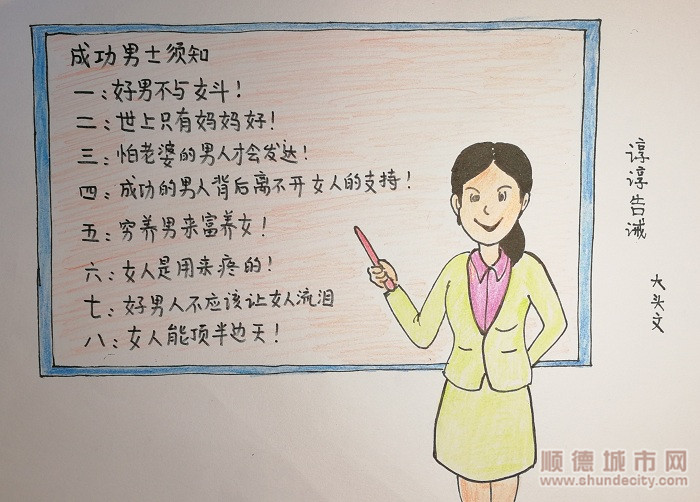 成功男士须知
一：好男不与女斗！
二：世上只有妈妈好！
三：怕老婆的男人才会发达！
四：成功的男人背后离不开女人的支持！
五：穷养男来富养女！
六：女人是用来疼的！
七：好男人不应该让女人流泪
八：女人能顶半边天！
谆谆告诫
大头文
顺德城市网
www.shundecity.com